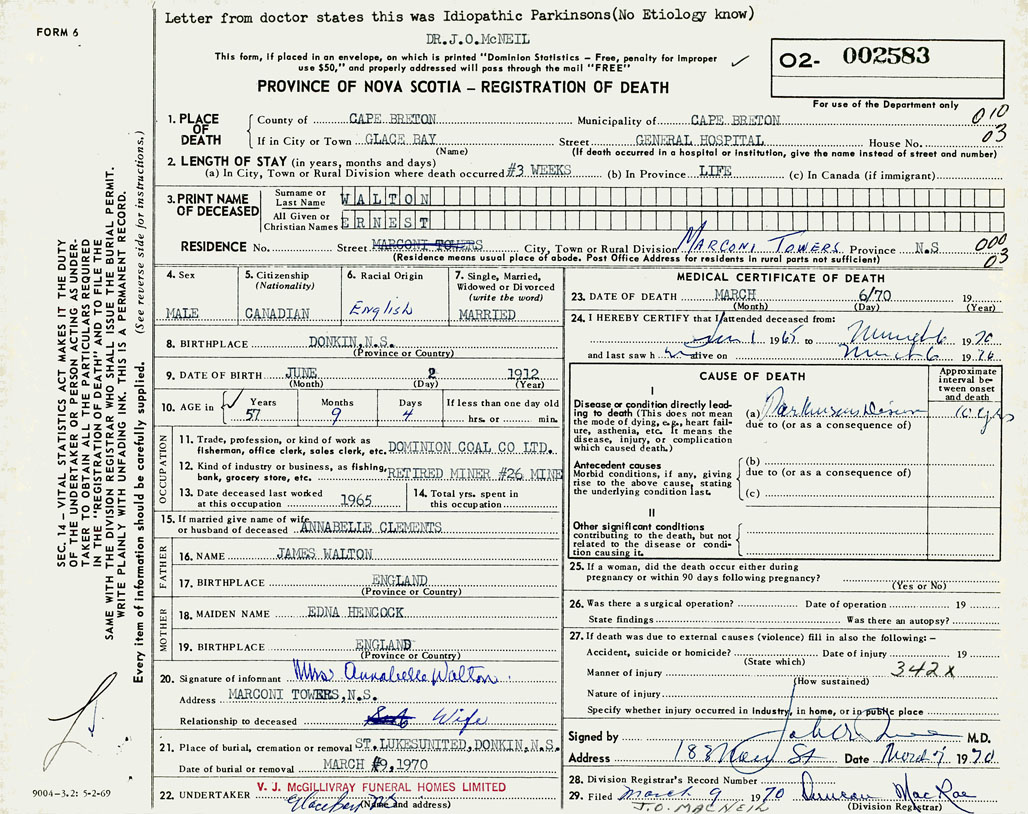 Letter from doctor states this was Idiopathic Parkinsons(No Etiology know)
FORM 6
DR.J.O.McNEIL
This form, if placed in an envelope, on which is printed "Dominion Statistics – Free, penalty for improper
use $50," and properly addressed will pass through the mail "FREE"
O2- 002583
PROVINCE OF NOVA SCOTIA – REGISTRATION OF DEATH
For use of the Department only
010
03
1. PLACE OF DEATH
County of CAPE BRETON Municipality of CAPE BRETON
If in City or Town GLACE BAY Street GENERAL HOSPITAL House No.
(Name) (If death occurred in a hospital or institution, give the name instead of street and number)
2. LENGTH OF STAY (in years, months and days)
(a) In City, Town or Rural Division where death occurred #3 WEEKS (b) In Province LIFE (c) In Canada (if immigrant)
3. PRINT NAME OF DECEASED
Surname or Last Name WALTON
All Given or Christian Names ERNEST
RESIDENCE No. Street MARCONI TOWERS City, Town or Rural Division MARCONI TOWERS Province N.S
000
03
(Residence means usual place of abode. Post Office Address for residents in rural parts not sufficient)
4. Sex
MALE
5. Citizenship
(Nationality)
CANADIAN
6. Racial Origin
English
7. Single, Married,
Widowed or Divorced
(write the word)
MARRIED
8. BIRTHPLACE DONKIN,N.S.
(Province or Country)
9. DATE OF BIRTH JUNE 2 1912
(Month) (Day) (Year)
10. AGE in
Years Months Days If less than one day old
57 9 4 hrs. or min.
OCCUPATION
11. Trade, profession, or kind of work as
fisherman, office clerk, sales clerk, etc. DOMINION COAL CO LTD.
12. Kind of industry or business, as fishing,
bank, grocery store, etc. RETIRED MINER #26 MINE
13. Date deceased last worked
at this occupation 1965
14. Total yrs. spent in
this occupation
15. If married give name of wife
or husband of deceased ANNABELLE CLEMENTS
FATHER
16. NAME JAMES WALTON
17. BIRTHPLACE ENGLAND
(Province or Country)
MOTHER
18. MAIDEN NAME EDNA HENCOCK
19. BIRTHPLACE ENGLAND
(Province or Country)
20. Signature of informant Mrs Annabelle Walton.
Address MARCONI TOWERS,N.S.
Relationship to deceased Wife
21. Place of burial, cremation or removal ST.LUKESUNITED,DONKIN,N.S.
Date of burial or removal MARCH 9,1970
22. UNDERTAKER V. J. McGILLIVRAY FUNERAL HOMES LIMITED
Glace Bay NS
(Name and address)
MEDICAL CERTIFICATE OF DEATH
23. DATE OF DEATH MARCH 6/70 19
(Month) (Day) (Year)
24. I HEREBY CERTIFY that I attended deceased from:
Jan 1 1965 to March 6 1970
and last saw h im alive on March 6 1970
CAUSE OF DEATH
Approximate
interval between
onset
and death
I
Disease or condition directly leading
to death (This does not
mean the mode of dying, e.g., heart failure,
asthenia, etc. It means the
disease, injury, or complication
which caused death.)
(a) Parkinsons Disease 10 yrs
due to (or as a consequence of)
Antecedent causes
Morbid conditions, if any, giving
rise to the above cause, stating
the underlying condition last.
(b)
due to (or as a consequence of)
(c)
II
Other significant conditions
contributing to the death, but not
related to the disease or condition
causing it.
25. If a woman, did the death occur either during
pregnancy or within 90 days following pregnancy?
(Yes or No)
26. Was there a surgical operation? Date of operation 19
State findings Was there an autopsy?
27. If death was due to external causes (violence) fill in also the following: –
Accident, suicide or homicide? Date of injury 19
(State which)
Manner of injury 342X
(How sustained)
Nature of injury
Specify whether injury occurred in Industry, in home, or in public place
Signed by M.D.
Address 188 Main St Date March 7 1970
28. Division Registrar's Record Number
29. Filed March 9 1970 Duncan MacRae
J.O. MACNEIL (Division Registrar)
SEC. 14 – VITAL STATISTICS ACT MAKES IT THE DUTY
OF THE UNDERTAKER OR PERSON ACTING AS UNDERTAKER
TO OBTAIN ALL THE PARTICULARS REQUIRED
IN THE "REGISTRATION OF DEATH" AND TO FILE THE
SAME WITH THE DIVISION REGISTRAR WHO SHALL ISSUE THE BURIAL PERMIT.
WRITE PLAINLY WITH UNFADING INK. THIS IS A PERMANENT RECORD.
Every item of information should be carefully supplied. (See reverse side for instructions.)
9004-3.2: 5-2-69